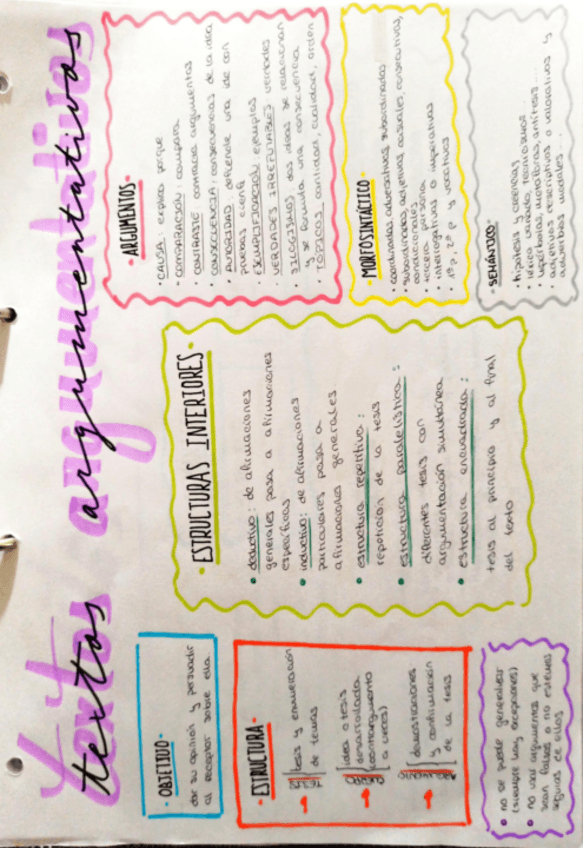 textos argumentativos
OBJETIVO
dar su opinión y persuadir
al receptor sobre ella.
ESTRUCTURA
TESIS
tesis y enumeración
de temas
CUERPO
idea o tesis
desarrollada
(contraargumento
a veces)
demostraciones
y confirmación
de la tesis
no se puede generalizar
(siempre hay excepciones)
no usar argumentos que
sean falsos o no estemos
seguros de ellos
ESTRUCTURAS INTERIORES
deductiva: de afirmaciones
generales pasa a afirmaciones
específicas
inductivo: de afirmaciones
particulares pasa a
afirmaciones generales
estructura repetitiva:
repetición de la tesis
estructura paralelística:
diferentes tesis con
argumentación simultánea
estructura encuadrada:
tesis al principio y al final
del texto
ARGUMENTOS
CAUSA: explica porque
COMPARACIÓN: compara
CONTRASTE: contrasta argumentos
CONSECUENCIA: consecuencias de la idea
AUTORIDAD: defiende una idea con
pruebas cientif
EJEMPLIFICACIÓN: ejemplos
VERDADES IRREFUTABLES: verdades
SILOGISMOS: dos ideas se relacionan
y se formula una consecuencia
TÓPICOS: cantidad, cualidad, orden
MORFOSINTÁCTICO
coordinadas adversativas, subordinadas
subordinadas, adjetivas, causales, consecutivas,
condicionales
tercera persona
interrogativas o imperativas
1ªp, 2ªp y vocativos
SEMÁNTICO
hipótesis y creencias
léxico variado, tecnicismos...
hipérboles, metáforas, antítesis...
adjetivos descriptivos o valorativos y
adverbios modales...